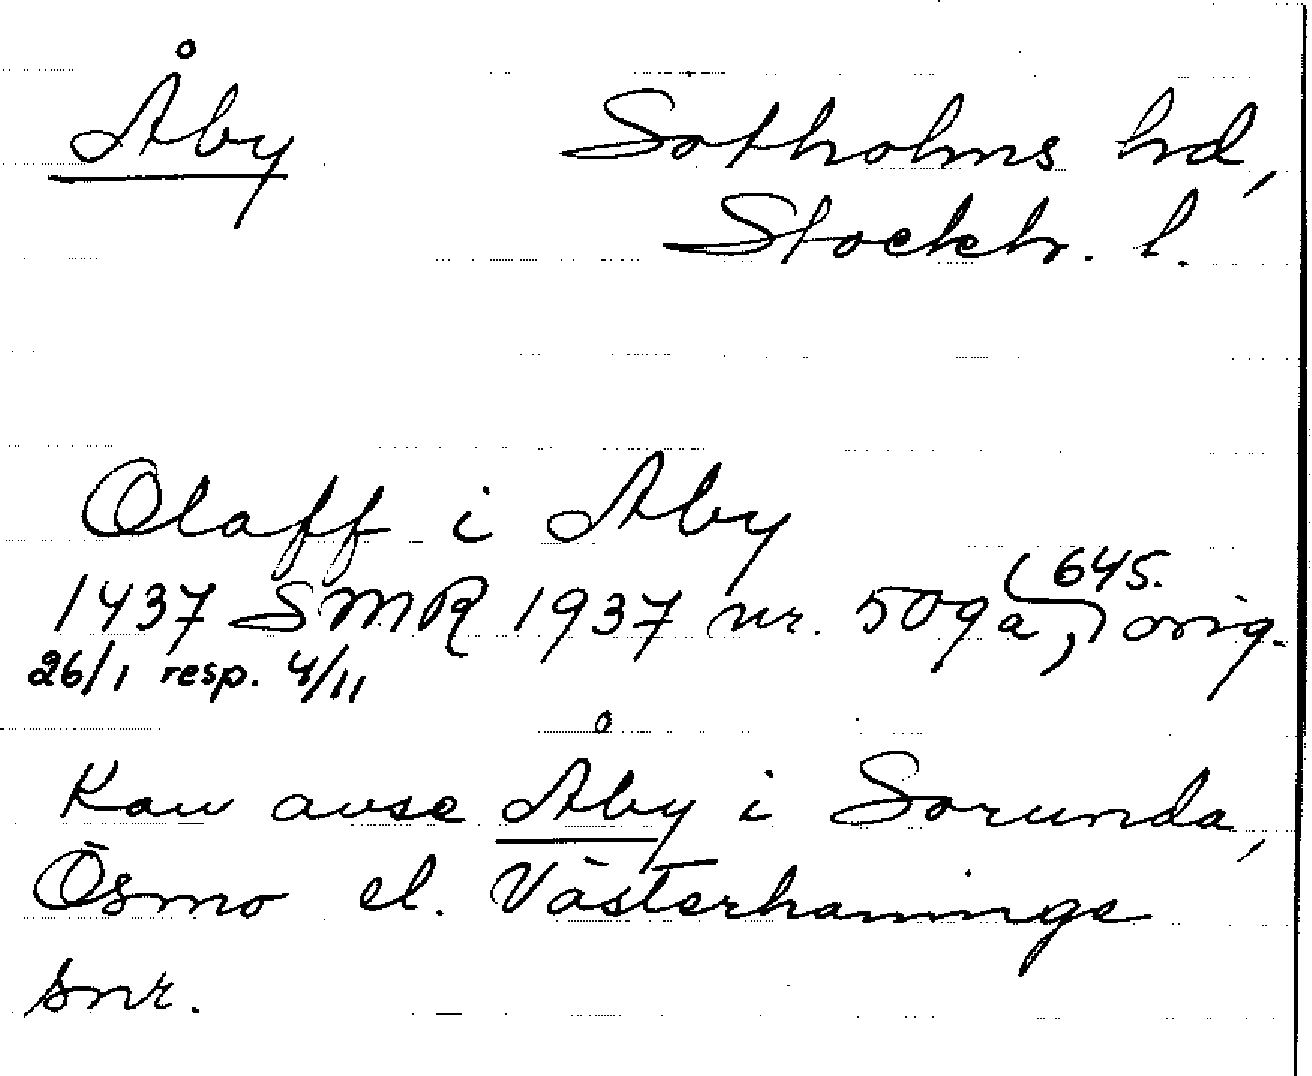 Åby
Sotholms hd,
Stockh. l.
Olaff i Aby
1437 SMR 1937 nr. 509a, 645. orig.
26/1 resp. 4/11
Kan avse Åby i Sorunda,
Ösmo el. Västerhaninge
snr.